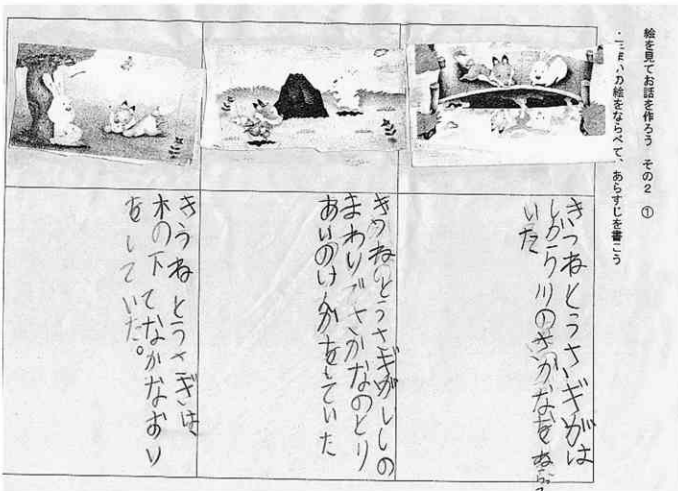 絵を見てお話を作ろう その2 ①
・三まいの絵をならべて、あらすじを書こう
きつねとうさいぎがは
しから川のさかなをねらって
いた
きつねとうさぎがいしの
まわりでさかなのとり
あいのけんかをしていた
きつねとうさぎは
木の下でなかなおり
をしていた。